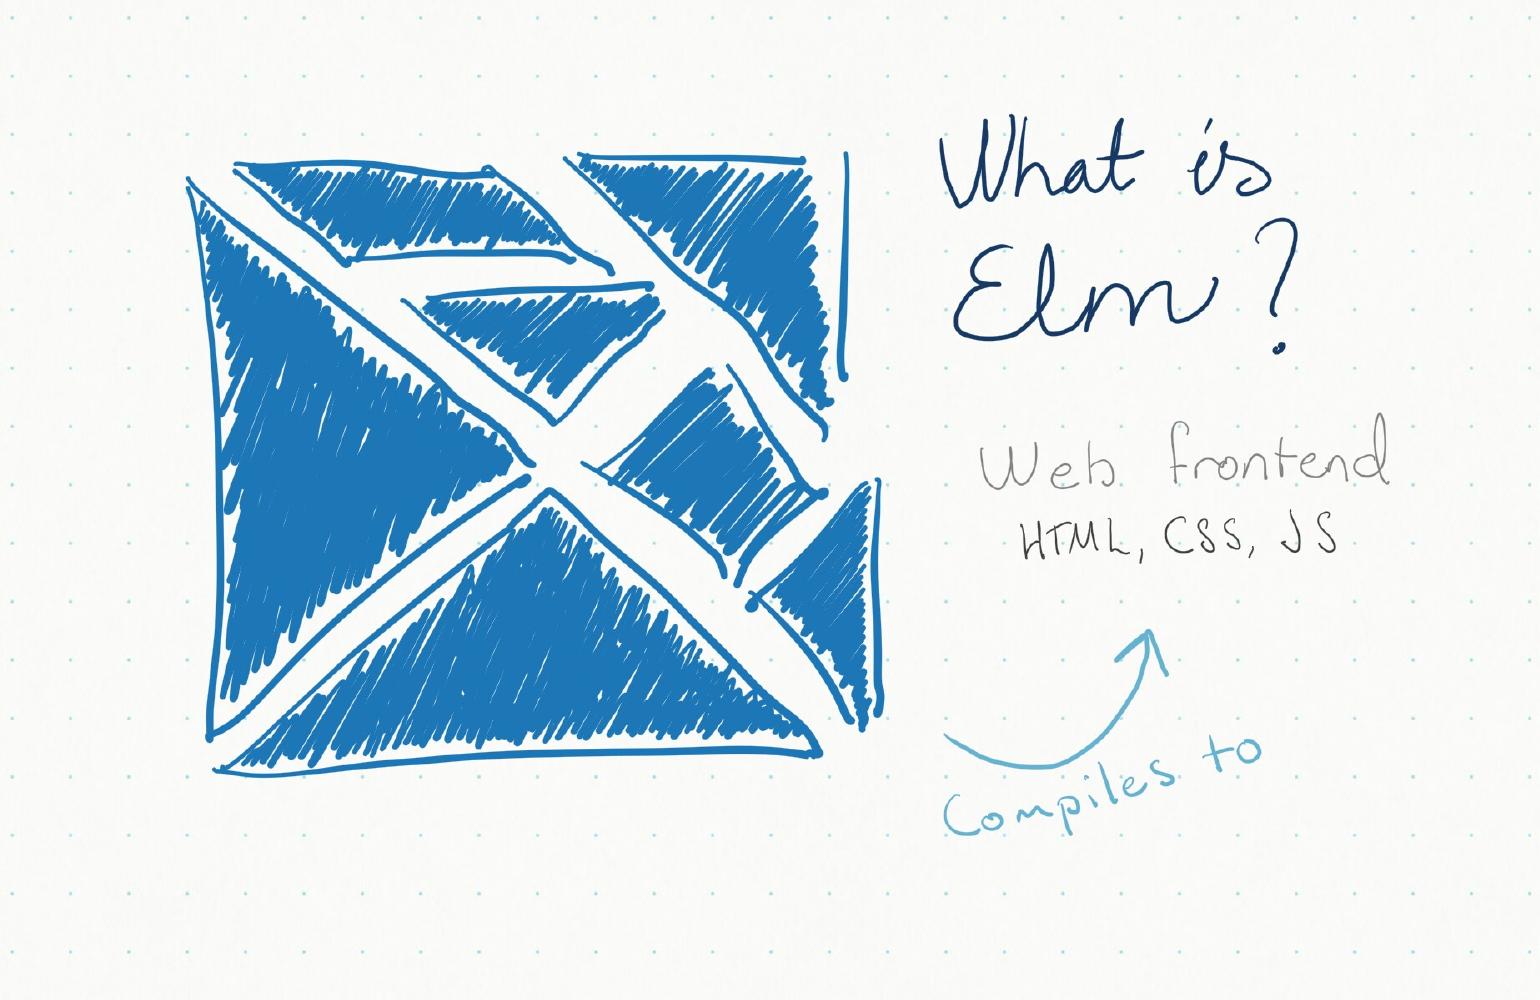 What is
Elm?
Web frontend
HTML, CSS, JS
Compiles to